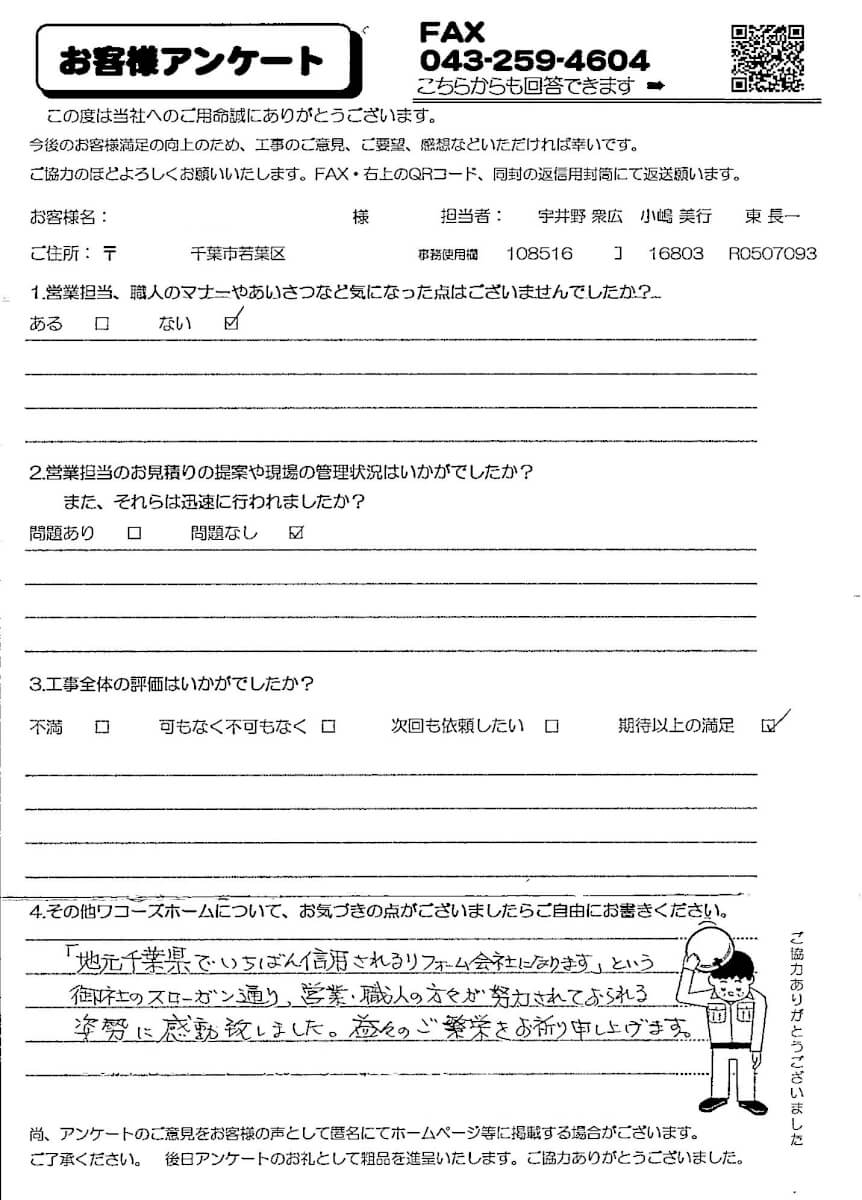 お客様アンケート
FAX
043-259-4604
こちらからも回答できます ➡
この度は当社へのご用命誠にありがとうございます。
今後のお客様満足の向上のため、工事のご意見、ご要望、感想などいただければ幸いです。
ご協力のほどよろしくお願いいたします。FAX・右上のQRコード、同封の返信用封筒にて返送願います。
お客様名： 様 担当者： 宇井野 衆広 小嶋 美行 東 長一
ご住所：〒 千葉市若葉区 事務使用欄 108516 コ 16803 R0507093
1.営業担当、職人のマナーやあいさつなど気になった点はございませんでしたか？
ある □ ない ☑
2.営業担当のお見積りの提案や現場の管理状況はいかがでしたか？
また、それらは迅速に行われましたか？
問題あり □ 問題なし ☑
3.工事全体の評価はいかがでしたか？
不満 □ 可もなく不可もなく □ 次回も依頼したい □ 期待以上の満足 ☑
4.その他ワコーズホームについて、お気づきの点がございましたらご自由にお書きください。
「地元千葉県でいちばん信用されるリフォーム会社になります」という
御社のスローガン通り、営業・職人の方々が努力されておられる
姿勢に感動致しました。益々のご繁栄をお祈り申し上げます。
ご協力ありがとうございました
尚、アンケートのご意見をお客様の声として匿名にてホームページ等に掲載する場合がございます。
ご了承ください。 後日アンケートのお礼として粗品を進呈いたします。ご協力ありがとうございました。